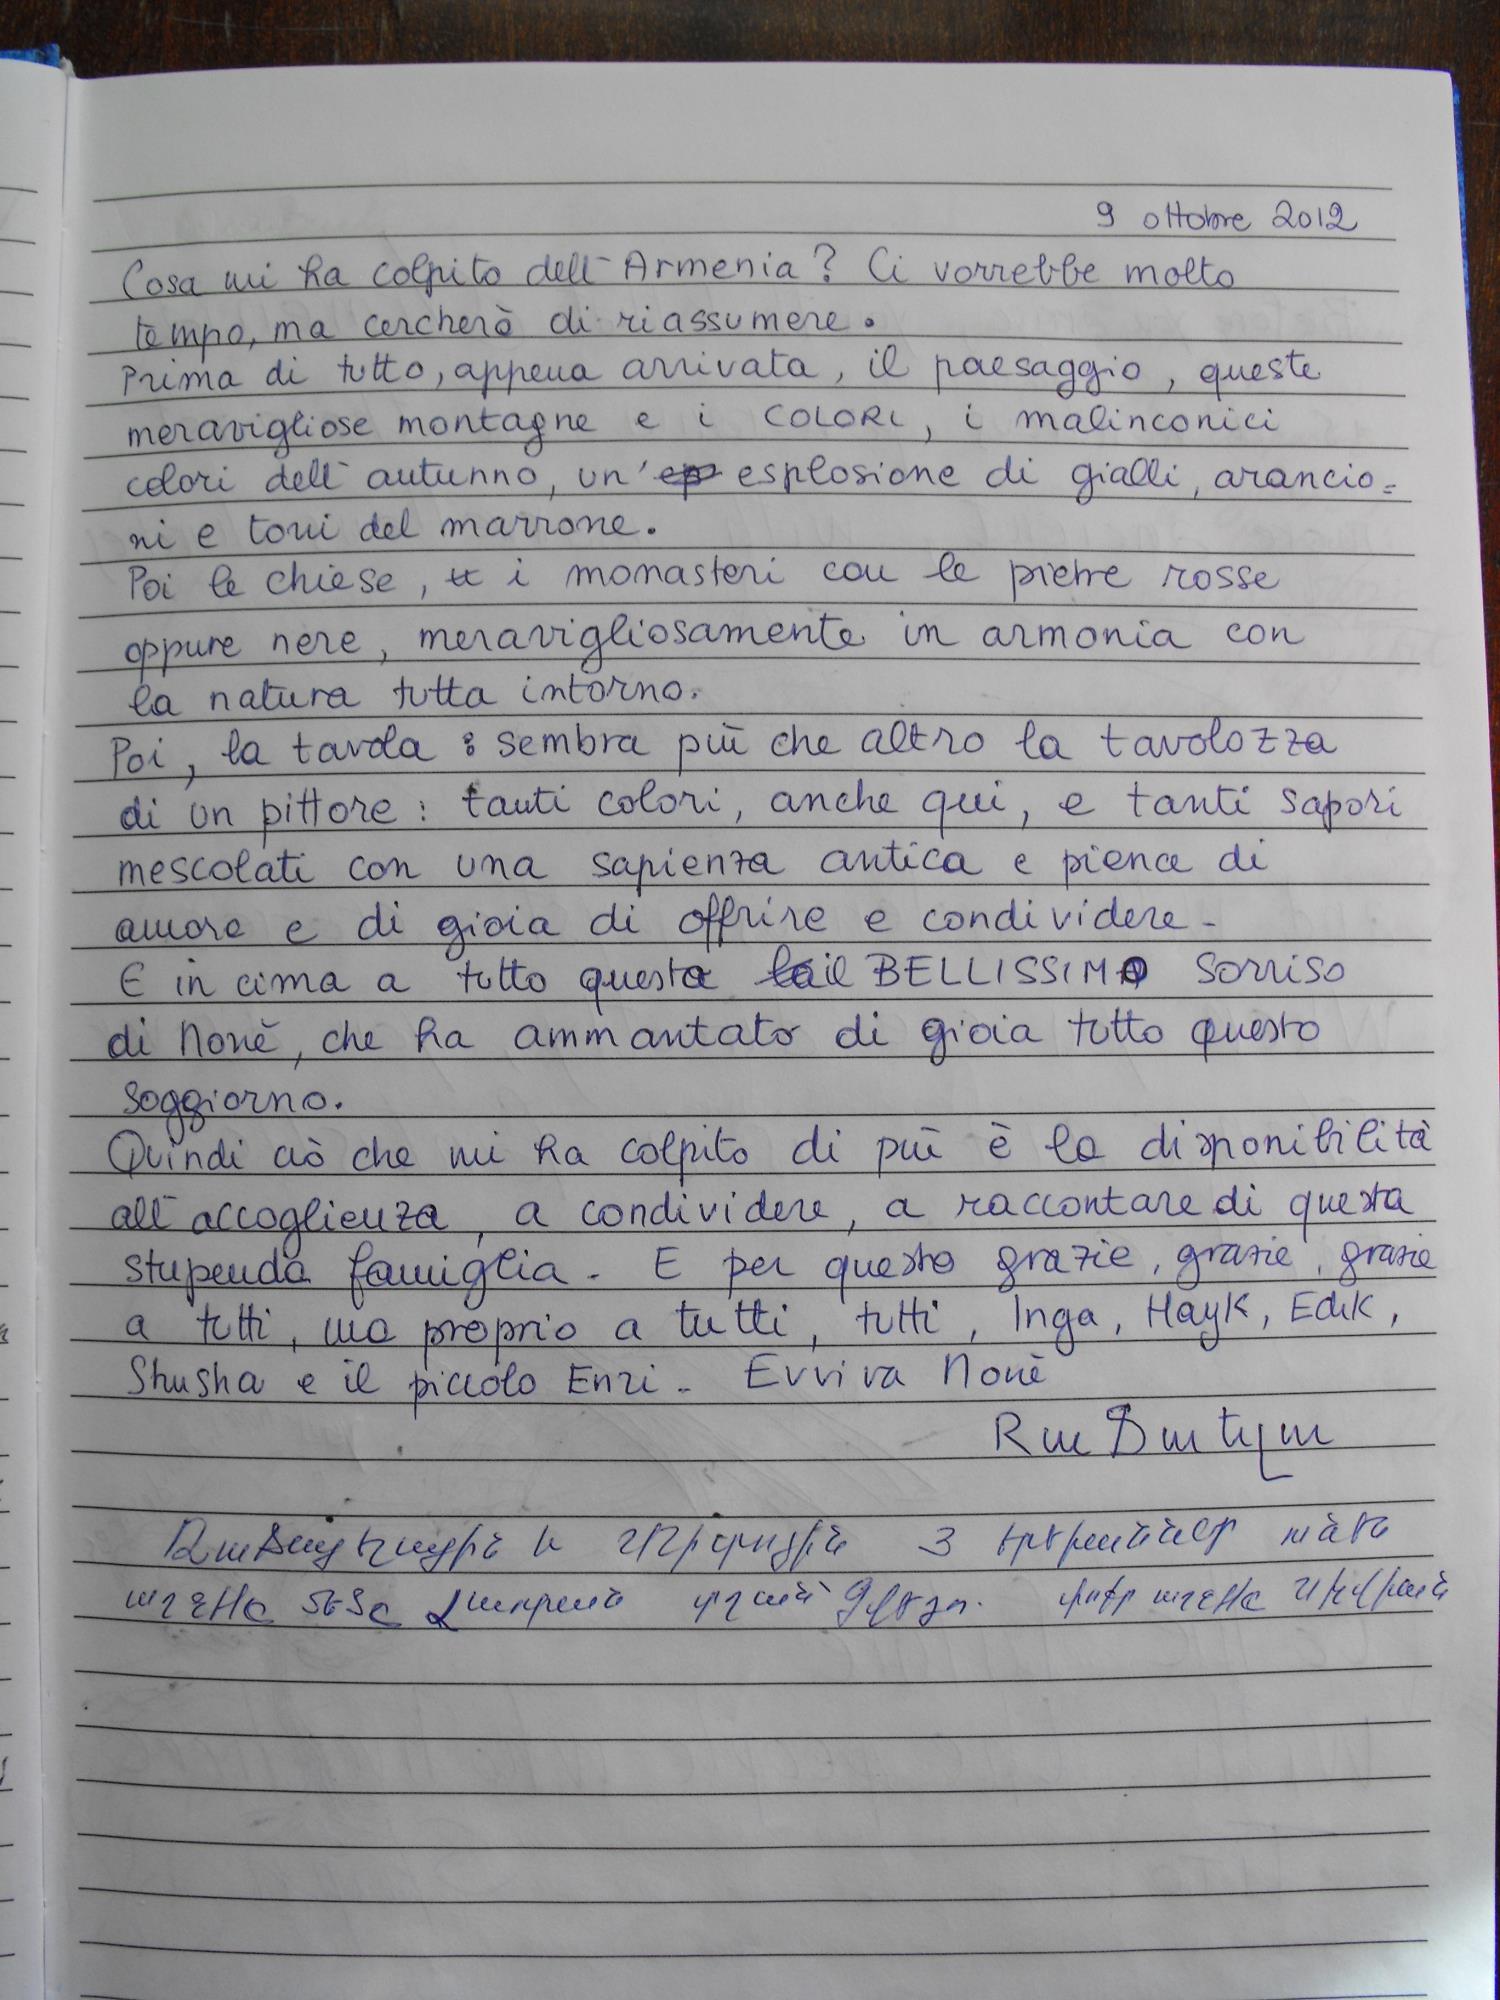 9 ottobre 2012
Cosa mi ha colpito dell'Armenia? Ci vorrebbe molto
tempo, ma cercherò di riassumere.
Prima di tutto, appena arrivata, il paesaggio, queste
meravigliose montagne e i COLORI, i malinconici
colori dell'autunno, un' esplosione di gialli, arancio=
ni e toni del marrone.
Poi le chiese, i monasteri con le pietre rosse
oppure nere, meravigliosamente in armonia con
la natura tutta intorno.
Poi, la tavola: sembra più che altro la tavolozza
di un pittore: tanti colori, anche qui, e tanti sapori
mescolati con una sapienza antica e piena di
amore e di gioia di offrire e condividere.
E in cima a tutto questo il BELLISSIMO sorriso
di Nonè, che ha ammantato di gioia tutto questo
soggiorno.
Quindi ciò che mi ha colpito di più è la disponibilità
all'accoglienza, a condividere, a raccontare di questa
stupenda famiglia. E per questo grazie, grazie, grazie
a tutti, ma proprio a tutti, tutti, Inga, Hayk, Edik,
Shusha e il piccolo Enzi. Evviva Nonè